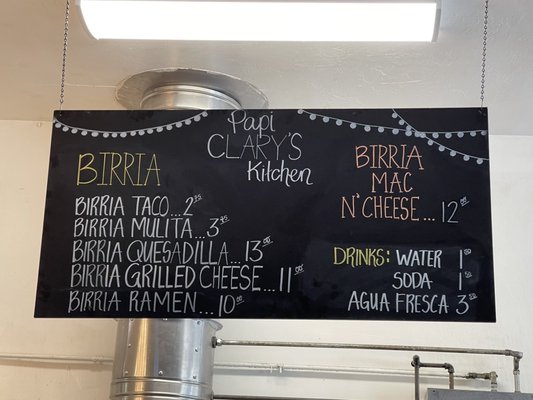 Papi
CLARY'S
Kitchen
BIRRIA
BIRRIA TACO...2
BIRRIA MULITA...3
BIRRIA QUESADILLA...13.00
BIRRIA GRILLED CHEESE...11.00
BIRRIA RAMEN...10.00
BIRRIA
MAC
N' CHEESE...12.00
DRINKS: WATER 1
SODA 1
AGUA FRESCA 3